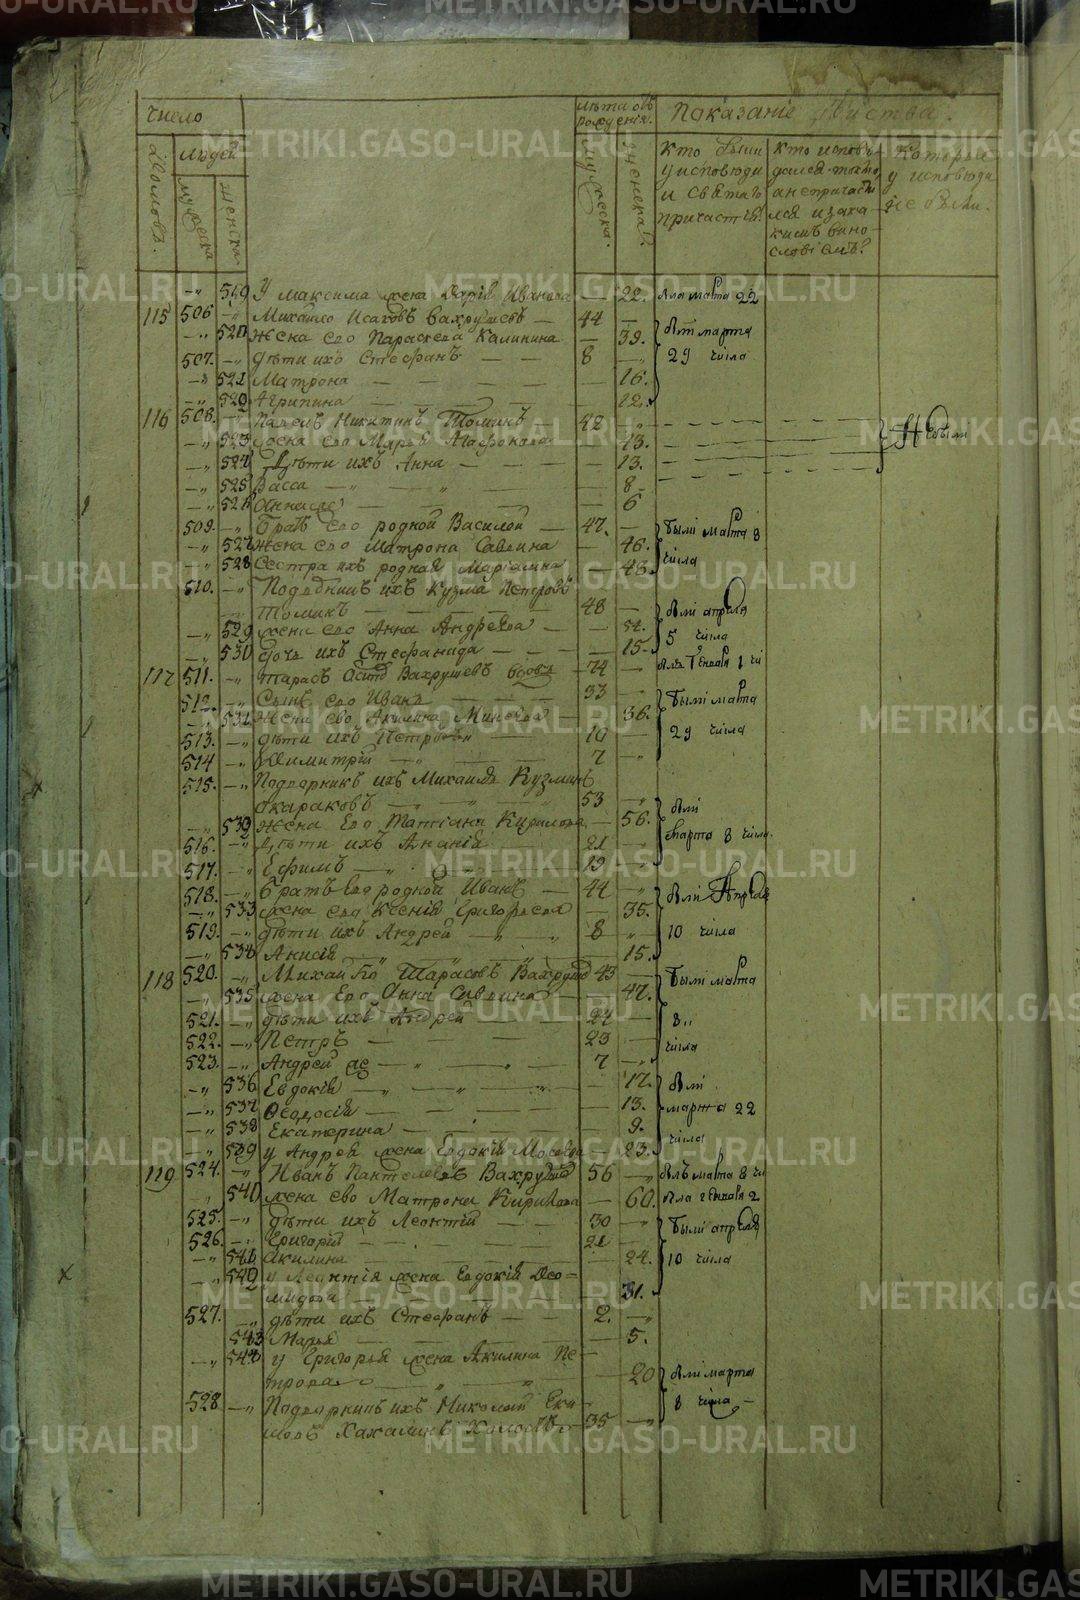 Число
Людей
лѣта отъ рожденія.
Показаніе
Дворовъ.
мужеска
женска
мужеска.
женска.
кто были у исповѣди и святаго причастія
кто исповѣдался токмо, а не причастился и за какимъ винословіемъ?
Которыя у исповѣди не были.
—„ 519 У Максима жена Дарія Иванова — 22. была марта 22
115 506 —„ Михайло Исаковъ Вахрушевъ — 44 — были марта
—„ 520 жена ево Параскева Калинина — 39. 29 числа
507. —„ дѣти ихъ Стефанъ — — 8 —„
—„ 521 Матрона — — — — — 16.
—„ 522 Агрипина — — — — 12.
116 508. —„ Павелъ Никитинъ Томинъ 42 „
—„ 523 жена ево Марья — 43. Не были
—„ 524 Дѣти ихъ Анна — — — — 13.
—„ 525 Васса —„ „ — — 8
—„ 526 — 6
509. —„ Братъ ево родной Василей — 47. — были марта 8
—„ 527 жена ево Матрона Савелина — 46. числа
—„ 528 Сестра ихъ родная — 48.
510. —„ ихъ Кузма Петровъ
Томинъ — 48 — были апреля
—„ 529 жена ево Анна Андреева — — 51. 5 числа
—„ 530 дочь ихъ Стефанида — — 15.
117 511. —„ Тарасъ Вахрушевъ вдовъ — 74 — былъ генваря 1 чи
512. —„ Сынъ ево Иванъ — 33 — были марта
—„ 531 жена ево Акилина Минеева — 36. 29 числа
513. —„ дѣти ихъ — 10 —
514 —„ Димитрій — „ — 7 —„
515. —„ Подворникъ ихъ Михайла Кузминъ
—„ — „ — 53 —„ были
—„ 532 жена Ево Татіана Кирилова — 56. марта 8 числа.
516. —„ Дѣти ихъ Ананія — 21 —„
517. —„ Ефимъ — „ — 19 —„
518. —„ Братъ Ево родной Иванъ — 44 —„ были Апреля
—„ 533 жена ево Ксенія Григорьева — 35. 10 числа
519. —„ дѣти ихъ Андрей — „ „ 8 „
—„ 534 Анисія — 15.
118 520. —„ Михайло Тарасовъ Вахрушев 43 — были марта
—„ 535 жена Ево Анна Савелина — 47. 8„
521. —„ дѣти ихъ Андрей — — 24 — числа
522. —„ Петръ — — — 23 —
523. —„ Андрей же — „ — „ 7 —„
—„ 536 Евдокія — „ „ „ — 17. были
—„ 537 Ѳеодосія — — — — — 13. марта 22
—„ 538 Екатерина — — — — 9. числа
—„ 539 у Андрея жена Евдокія Мосеева — 23.
119 524. —„ Иванъ Пантелеевъ Вахрушев 56 —„ былъ марта 8 чи
„ 540 жена ево Матрона Кирилова — 60. была генваря 2
525. —„ дѣти ихъ Леонтій — — 30 —„ были апреля
526. —„ Григорій — — — 21 — 10 числа
—„ 541 Акилина — — — 24.
—„ 542 у Леонтія жена Евдокія Део=
мидова — — — 31.
527. —„ дѣти ихъ Стефанъ — — 2. —„
543 Марья — — — — 5.
—„ 544 у Григорья жена Акилина Пе=
трова — „ „ — 20 были марта
528 —„ Подворникъ ихъ Николай Еки= 8 числа —
мовъ — 35 —„
METRIKI.GASO-URAL.RU